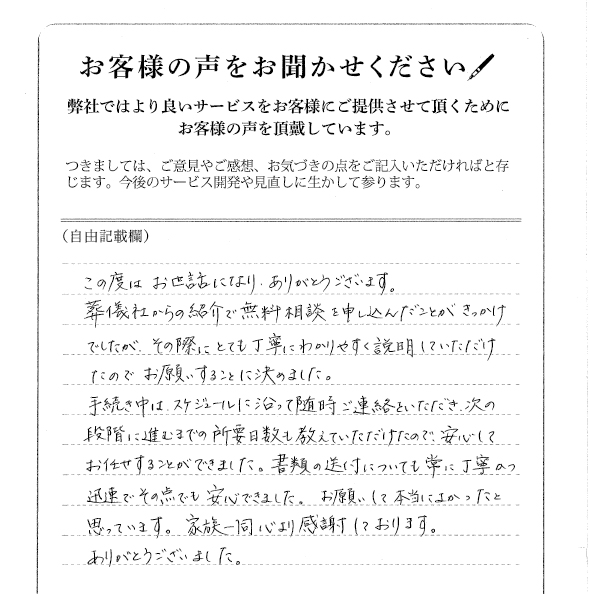 お客様の声をお聞かせください
弊社ではより良いサービスをお客様にご提供させて頂くために
お客様の声を頂戴しています。
つきましては、ご意見やご感想、お気づきの点をご記入いただければと存
じます。今後のサービス開発や見直しに生かして参ります。
（自由記載欄）
この度は お世話になり、ありがとうございます。
葬儀社からの紹介で無料相談を申し込んだことが きっかけ
でしたが、その際にとても丁寧にわかりやすく説明していただけ
たので お願いすることに決めました。
手続き中は、スケジュールに沿って随時ご連絡をいただき、次の
段階に進むまでの所要日数も教えていただけたので、安心して
お任せすることができました。書類の送付についても常に丁寧かつ
迅速でその点でも 安心できました。 お願いして本当によかったと
思っています。 家族一同 心より感謝しております。
ありがとうございました。